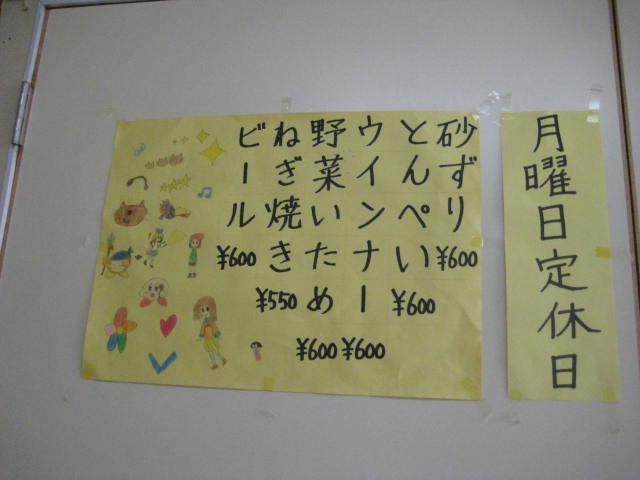 月曜日定休日
砂ずり ¥600
とんぺい ¥600
ウインナー ¥600
野菜いため ¥600
ねぎ焼き ¥550
ビール ¥600